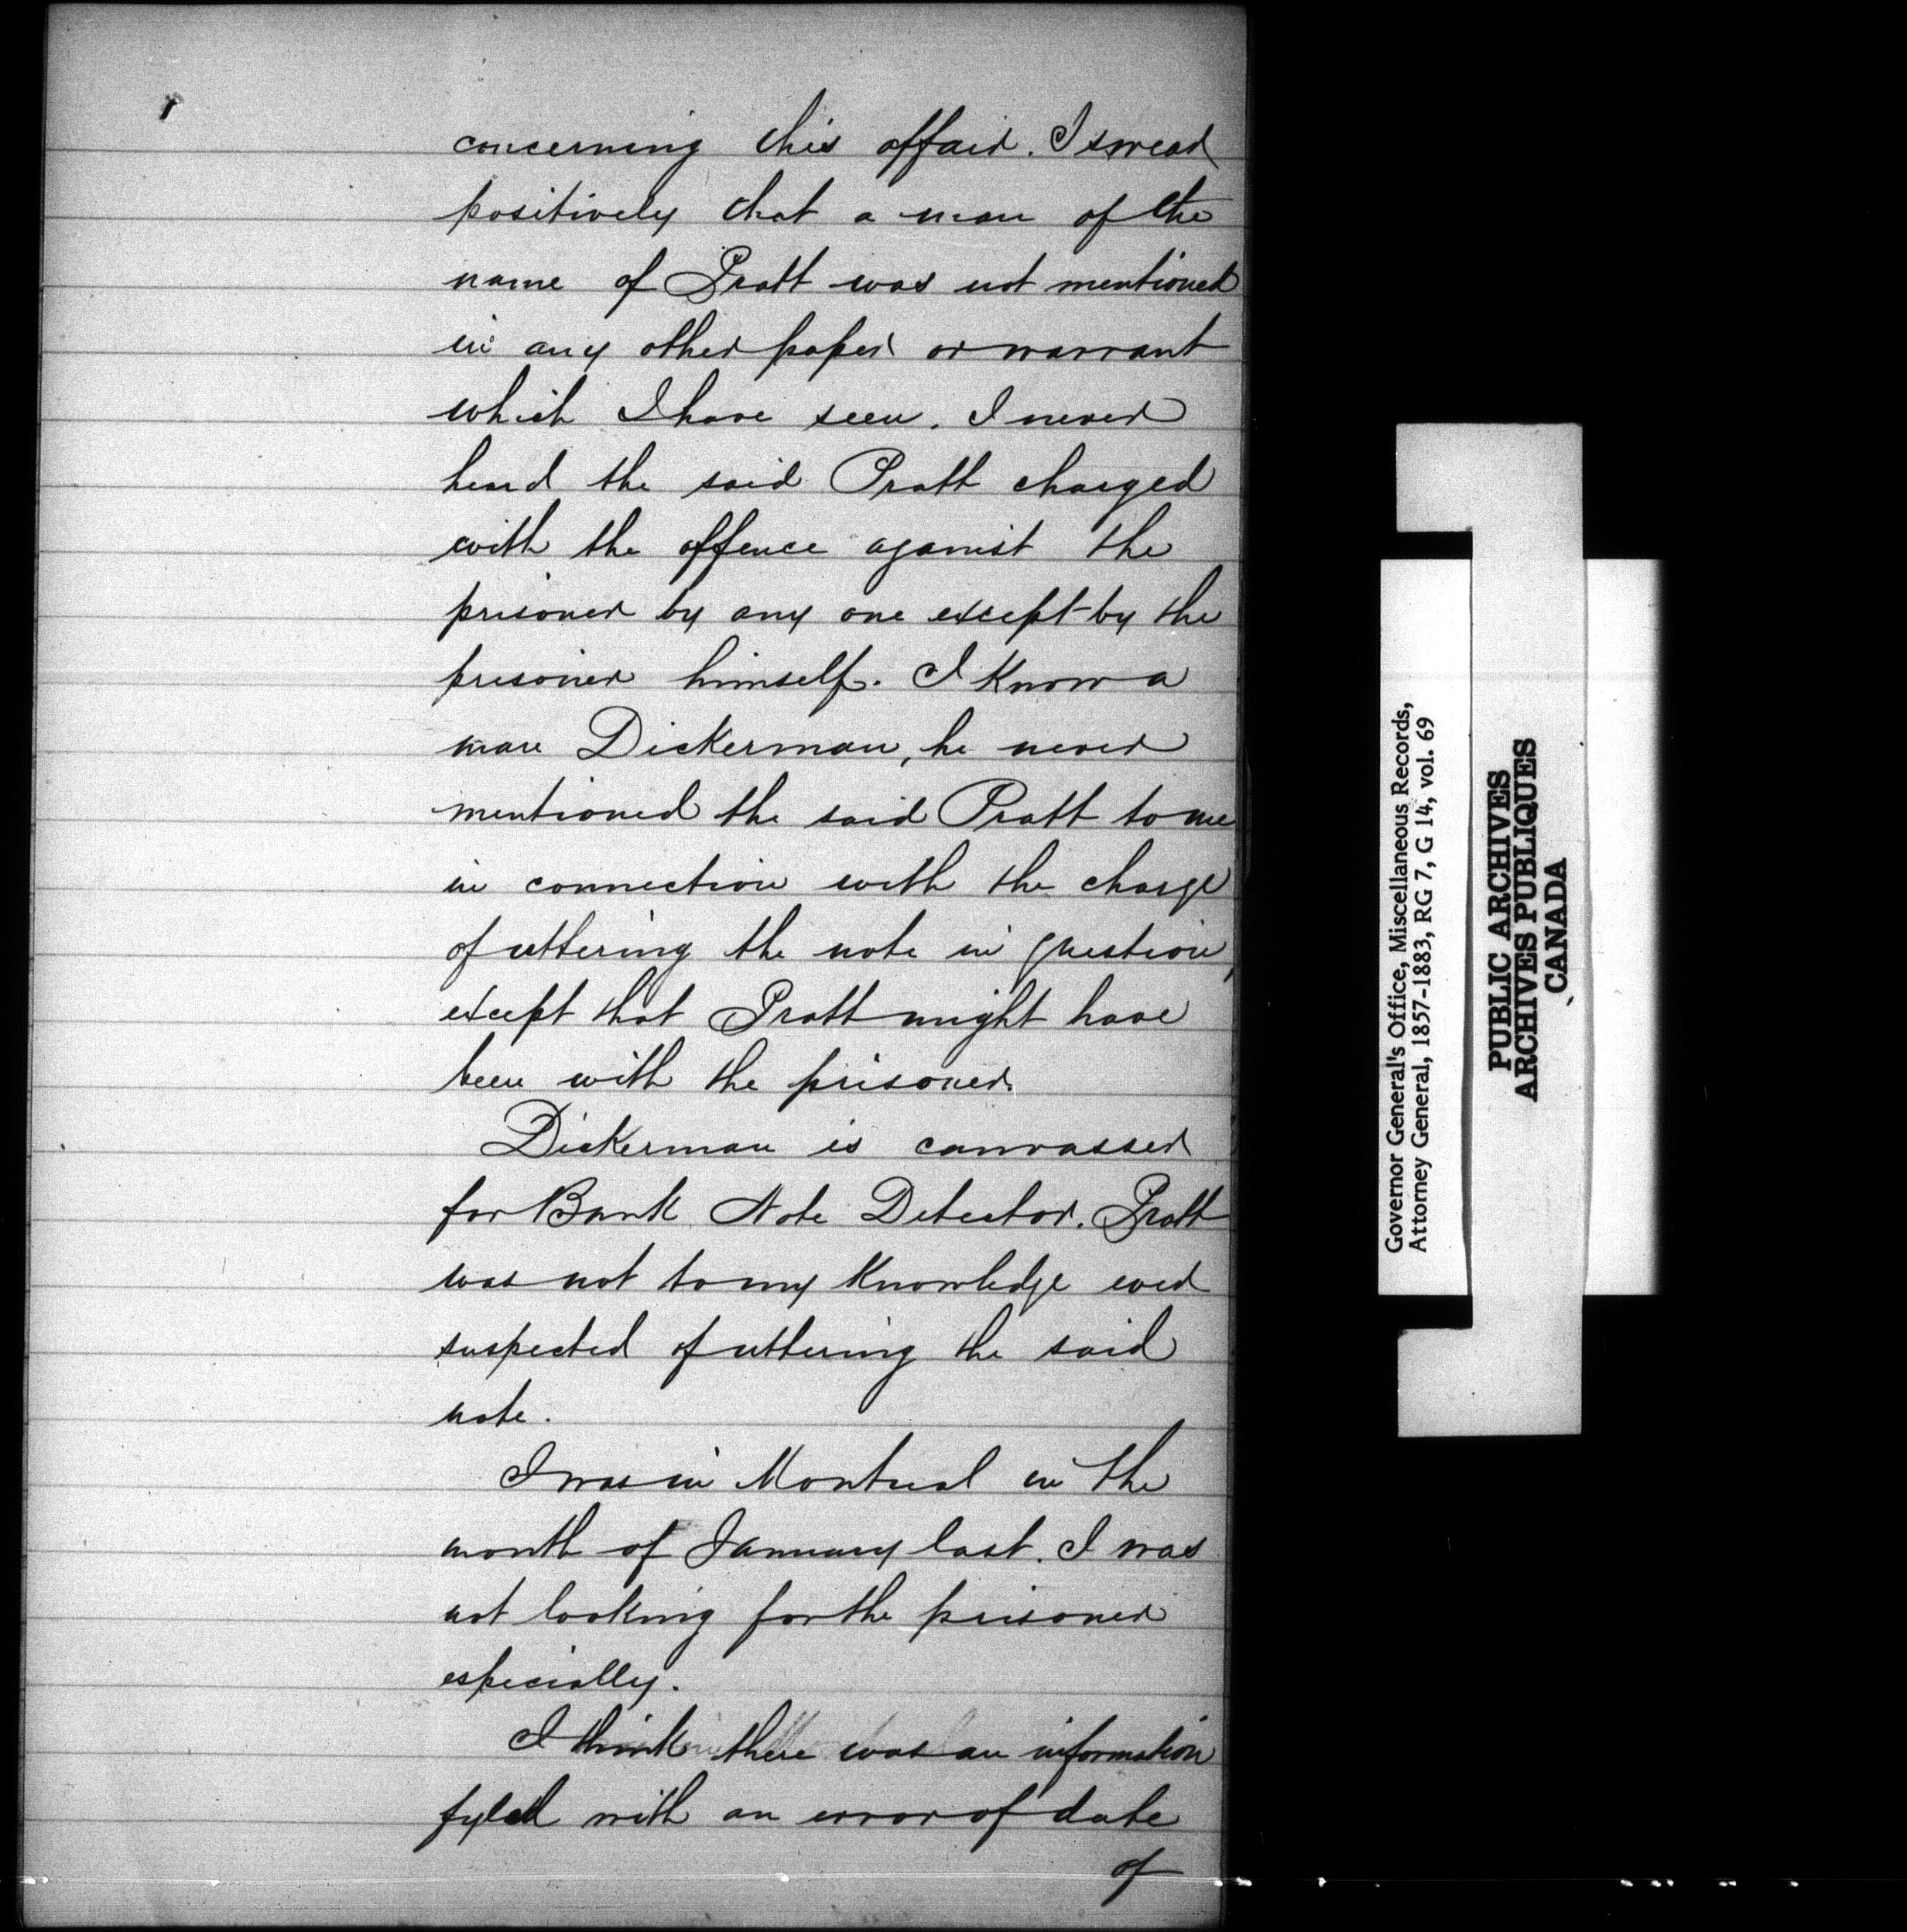 concerning this affair. I swear
positively that a man of the
name of Pratt was not mentioned
in any other paper or warrant
which I have seen. I never
heard the said Pratt charged
with the offence against the
prisoner by any one except by the
prisoner himself. I know a
man Dickerman, he never
mentioned the said Pratt to me
in connection with the charge
of uttering the note in question,
except that Pratt might have
been with the prisoner.
Dickerman is canvasser
for Bank Note Detector. Pratt
was not to my knowledge ever
suspected of uttering the said
note.
I was in Montreal in the
month of January last. I was
not looking for the prisoner
especially.
I think there was an information
fyled with an error of date
of
Governor General's Office, Miscellaneous Records,
Attorney General, 1857-1883, RG 7, G 14, vol. 69
PUBLIC ARCHIVES
ARCHIVES PUBLIQUES
CANADA